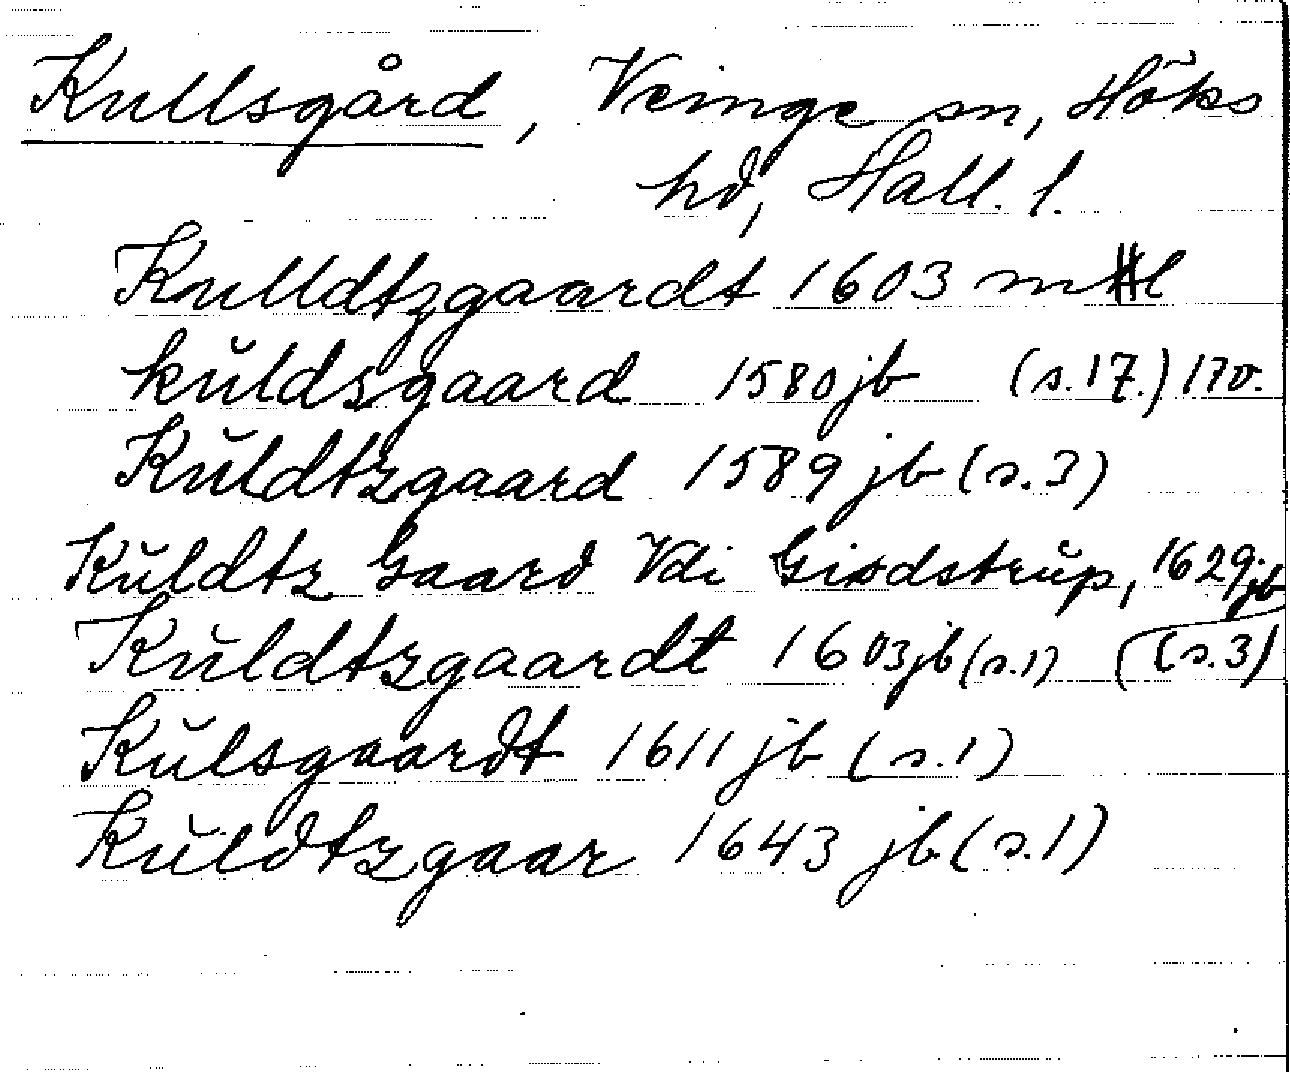 Kullsgård, Veinge sn, Höks
hd, Hall. l.
Kulldtzgaardt 1603 mtl
kŭldsgaard 1580 jb (s.17.) 170.
Kŭldtzgaard 1589 jb (s.3)
Kŭldtz Gaard Vdi Gisdstrŭp, 1629 jb
(s.3)
Kŭldtzgaardt 1603 jb (s.1)
Kŭlsgaardt 1611 jb (s.1)
Kŭldtzgaar 1643 jb (s.1)